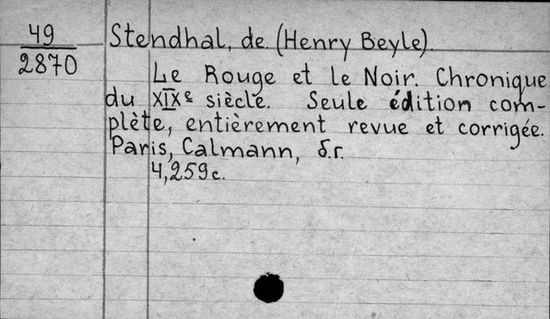 49
2870
Stendhal, de. (Henry Beyle).
Le Rouge et le Noir. Chronique
du XIXe siècle. Seule édition com-
plète, entièrement revue et corrigée.
Paris, Calmann, б.г.
4,259с.